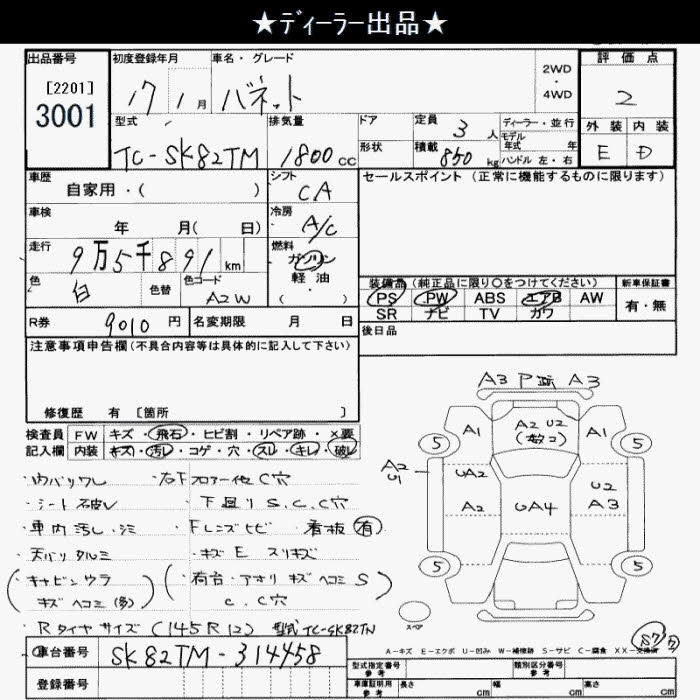 ★ディーラー出品★
出品番号 初度登録年月 車名・グレード 評価点
[2201] 2WD
3001 17 1月 バネット ・ 2
4WD
型式 排気量 ドア 定員 3人 ディーラー・並行 外装 内装
モデル年式 年
TC-SK82TM 1800cc 形状 積載 850kg ハンドル 左・右 E D
車歴 シフト セールスポイント (正常に機能するものに限ります)
自家用・( ) CA
車検 冷房
年 月( 日) A/C
走行 燃料
9万5千891km ガソリン
色 色替 色コード 軽油 装備品(純正品に限り○をつけてください) 新車保証書
白 A2W ( ・ ) PS PW ABS エアB AW 有・無
SR ナビ TV カワ
R券 9010円 名変期限 月 日 後日品
注意事項申告欄(不具合内容等は具体的に記入して下さい)
修復歴 有 [箇所 ]
検査員 FW キズ・飛石・ヒビ割・リペア跡・×要
記入欄 内装 キズ・汚レ・コゲ・穴・スレ・キレ・破レ
A3 P A3
A1 A2 U2 A1
5 5
A2 U1 UA2 U2
A2 UA4 A3
5 5
スペア
・シート破レ ・下廻りS.C.C穴
・車内汚レ・シミ ・Fレンズヒビ 看板 有
・天バリタルミ ・キズE スリキズ
(キャビンウラ (荷台・アオリ キズ ヘコミ S
キズ ヘコミ(多)) C.C穴)
Rタイヤサイズ (145R12) 型式TC-SK82TN
A-キズ E-エクボ U-凹み W-補修跡 S-サビ C-腐食 XX-交換済
車台番号 SK82TM-314458
型式指定番号 参考 類別区分番号 参考
登録番号 車庫証明用 参考 長さ cm 幅 cm 高さ cm